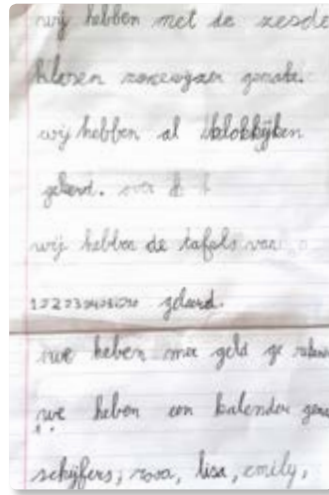 wij hebben met de zesde
klasen zonewijzer gemake.
wij hebben al klokkijken
geleerd. over
wij hebben de tafels van
geleerd.
we heben met geld ge
we heben een kalender gema
schrijfers; rosa, lisa, emily,